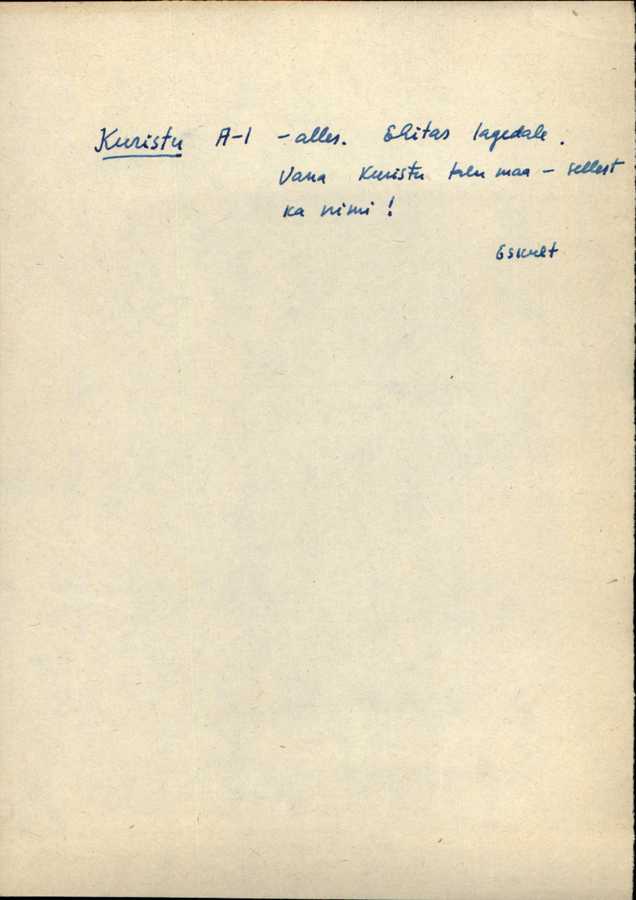 Kuristu A-1 - alles. Ehitas lagedale.
Vana Kuristu talu maa - sellest
ka nimi!